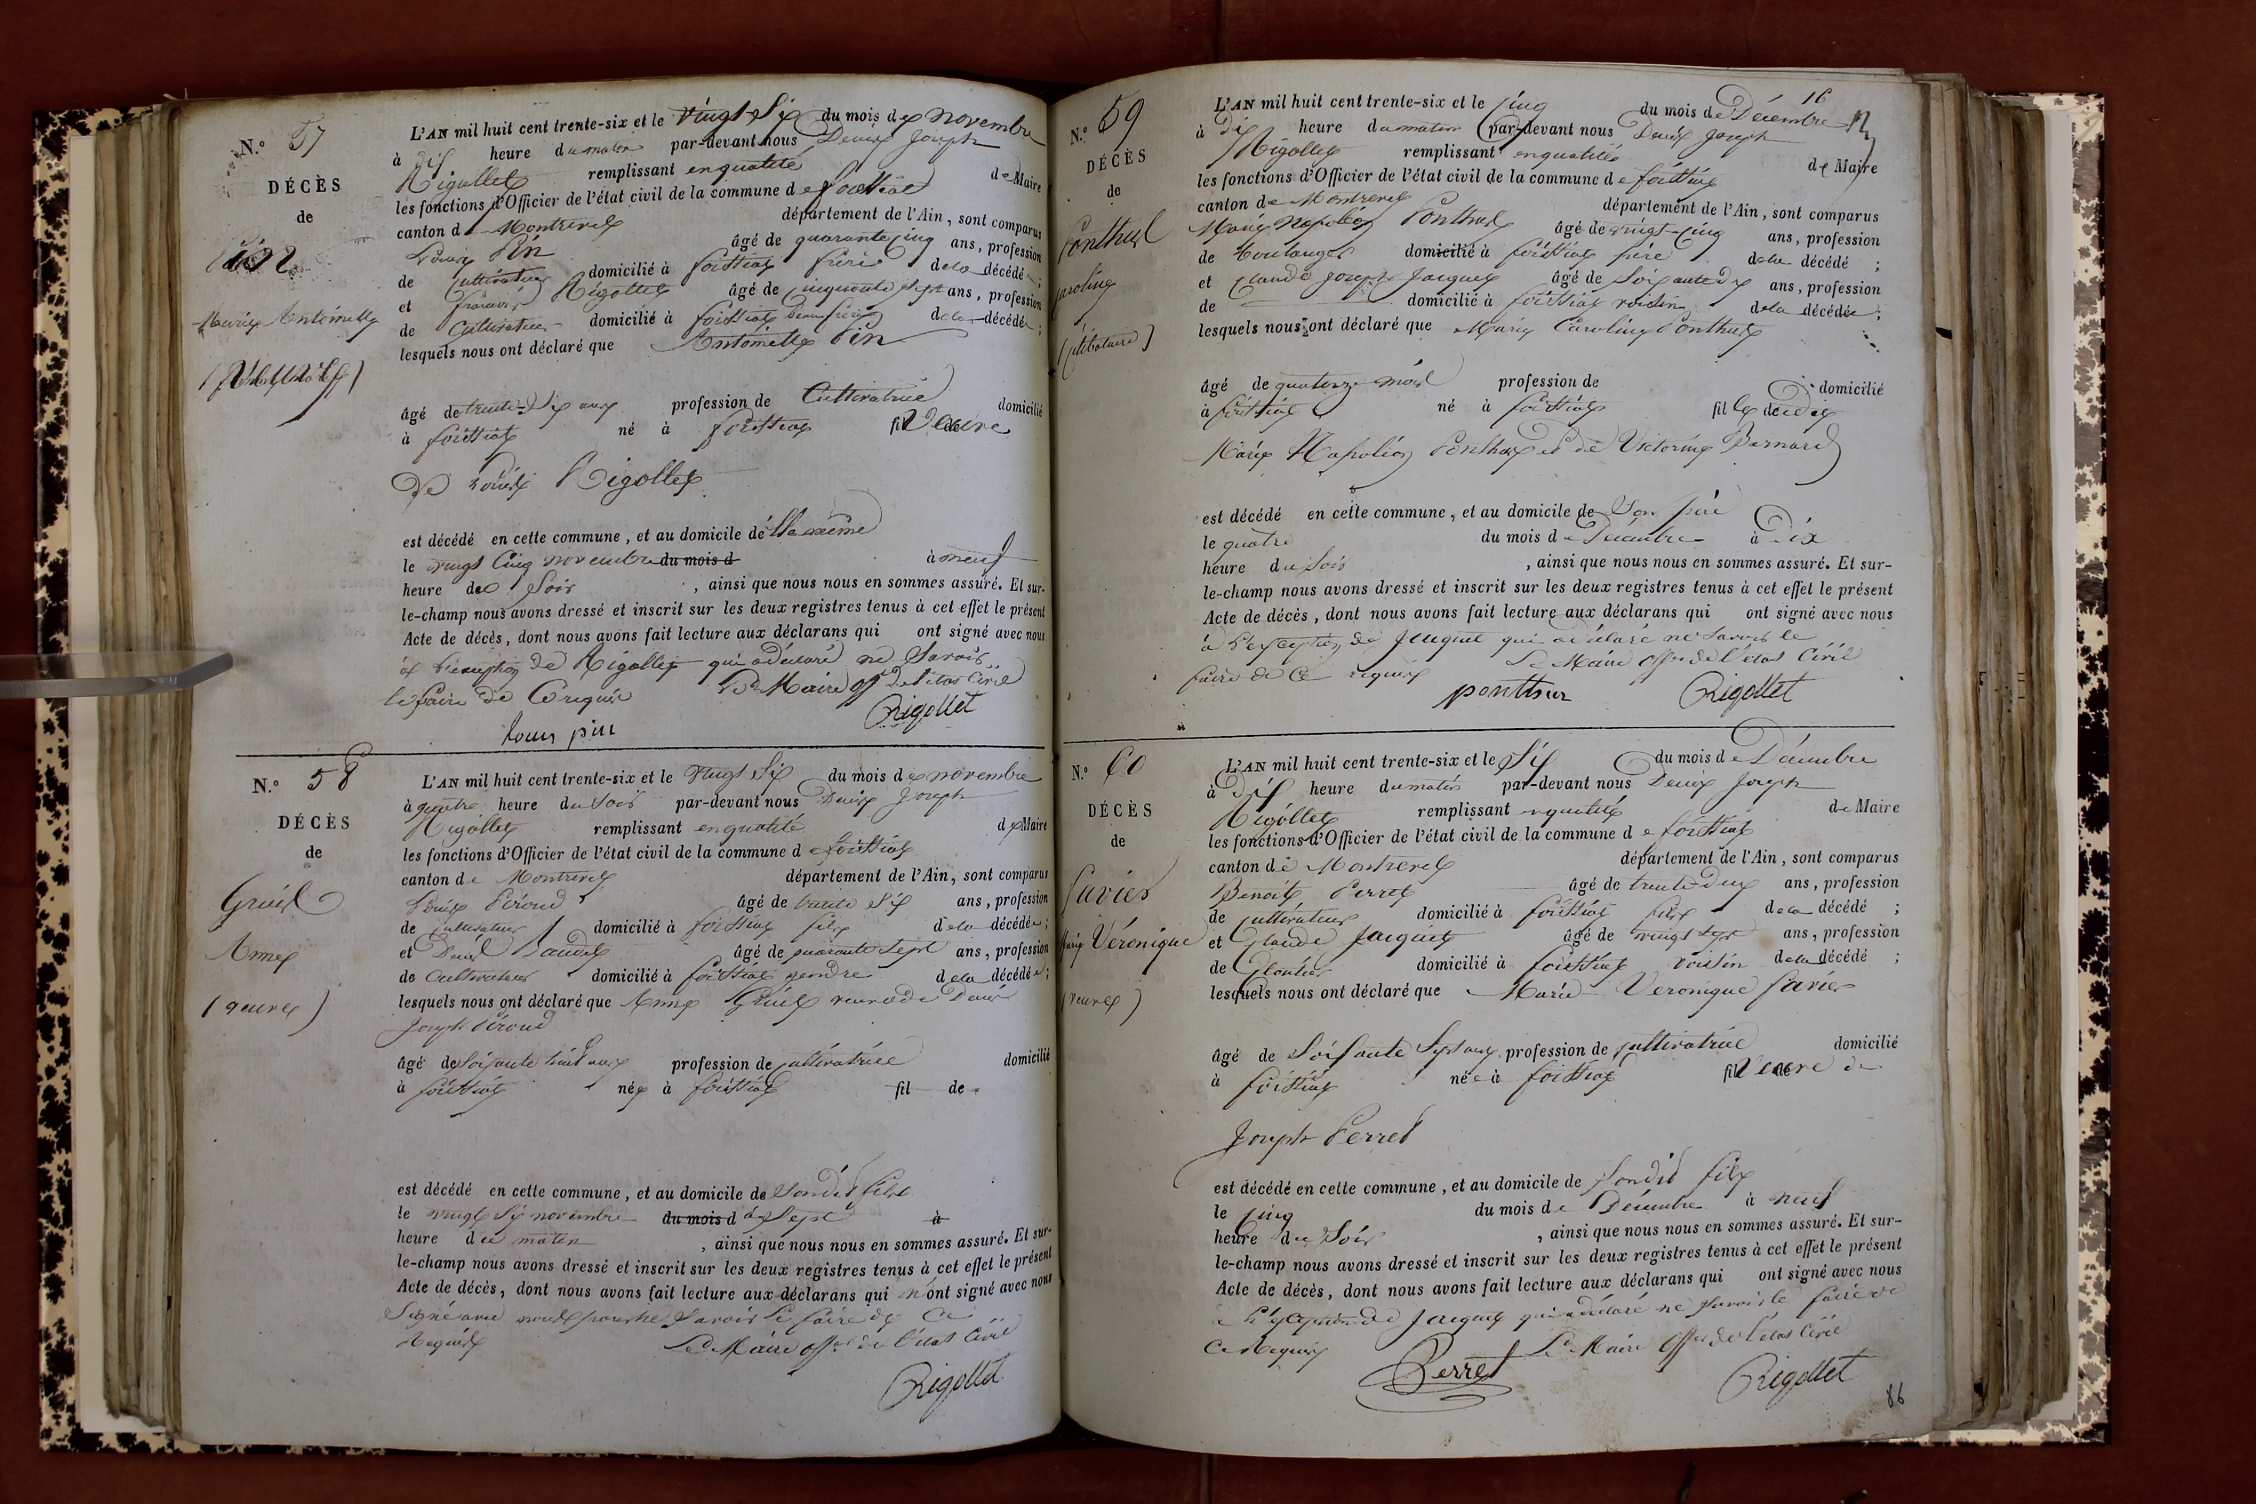 N.º 57
DÉCÈS
de
Pin
Marie Antoinette
L'AN mil huit cent trente-six et le vingt Six du mois de novembre
à dix heure du matin par-devant nous Denis Joseph
Rigollet remplissant en qualité de Maire
les fonctions d'Officier de l'état civil de la commune de foissiat
canton de Montrevel département de l'Ain, sont comparus
Louis Pin âgé de quarante cinq ans, profession
de Cultivateur domicilié à foissiat frère de la décédée ;
et francois Rigollet âgé de cinquante sept ans, profession
de Cultivateur domicilié à foissiat beau frère de la décédée ;
lesquels nous ont déclaré que Antoinette Pin
âgé de trente-Six ans profession de Cultivatrice domicilié
à foissiat né à foissiat fil de Veuve
De Louis Rigollet
est décédé en cette commune, et au domicile de Elle même
le vingt Cinq novembre du mois d à neuf
heure de Soir , ainsi que nous nous en sommes assuré. Et sur-
le-champ nous avons dressé et inscrit sur les deux registres tenus à cet effet le présent
Acte de décès, dont nous avons fait lecture aux déclarans qui ont signé avec nous
à l'exception de Rigollet qui a déclaré ne Savoir
le faire de Ce requis Le Maire off de l'état Civil
Louis pin Rigollet
N.º 58
DÉCÈS
de
Gruel
Anne
(veuve)
L'AN mil huit cent trente-six et le vingt Six du mois de novembre
à quatre heure du soir par-devant nous Denis Joseph
Rigollet remplissant en qualité de Maire
les fonctions d'Officier de l'état civil de la commune de foissiat
canton de Montrevel département de l'Ain, sont comparus
Louis Péroud âgé de trente Six ans, profession
de Cultivateur domicilié à foissiat fils de la décédée ;
et Denis âgé de quarante Sept ans, profession
de Cultivateur domicilié à foissiat gendre de la décédée ;
lesquels nous ont déclaré que Anne Gruel veuve de Denis
Joseph Péroud
âgé de Soixante huit ans profession de Cultivatrice domicilié
à foissiat née à foissiat fil de
est décédé en cette commune, et au domicile de Son dit fils
le vingt Six novembre du mois d à Sept à
heure du matin , ainsi que nous nous en sommes assuré. Et sur-
le-champ nous avons dressé et inscrit sur les deux registres tenus à cet effet le présent
Acte de décès, dont nous avons fait lecture aux déclarans qui n'ont signé avec nous
Signé avec nous pour ne Savoir le faire de Ce
Requis Le Maire off de l'état Civil
Rigollet
16
N.º 59
DÉCÈS
de
Ponthus
Caroline
(Célibataire)
L'AN mil huit cent trente-six et le Cinq du mois de Décembre
à Dix heure du matin par-devant nous Denis Joseph
Rigollet remplissant en qualité de Maire
les fonctions d'Officier de l'état civil de la commune de foissiat
canton de Montrevel département de l'Ain, sont comparus
Marie Napoléon Ponthus âgé de vingt-Cinq ans, profession
de boulanger domicilié à foissiat père de la décédé ;
et Claude Joseph Jacquet âgé de Soixante dix ans, profession
de domicilié à foissiat voisin de la décédée ;
lesquels nous ont déclaré que Marie Caroline Ponthus
âgé de quatorze mois profession de domicilié
à foissiat né à foissiat fille de dit
Marie Napoléon Ponthus et de Victorine Bernard
est décédé en cette commune, et au domicile de Son père
le quatre du mois de Décembre à Dix
heure du Soir , ainsi que nous nous en sommes assuré. Et sur-
le-champ nous avons dressé et inscrit sur les deux registres tenus à cet effet le présent
Acte de décès, dont nous avons fait lecture aux déclarans qui ont signé avec nous
à l'exception de Jacquet qui a déclaré ne Savoir le
faire de Ce requis Le Maire offr de l'état Civil
ponthus Rigollet
N.º 60
DÉCÈS
de
Savier
Marie Véronique
(veuve)
L'AN mil huit cent trente-six et le Six du mois de Décembre
à Dix heure du matin par-devant nous Denis Joseph
Rigollet remplissant en qualité de Maire
les fonctions d'Officier de l'état civil de la commune de foissiat
canton de Montrevel département de l'Ain, sont comparus
Benoit Perret âgé de trente Deux ans, profession
de Cultivateur domicilié à foissiat fils de la décédé ;
et Claude Jacquet âgé de vingt Sept ans, profession
de domicilié à foissiat voisin de la décédé ;
lesquels nous ont déclaré que Marie Véronique Savier
âgé de Soixante Sept ans profession de Cultivatrice domicilié
à foissiat née à foissiat fil de Veuve de
Joseph Perret
est décédé en cette commune, et au domicile de Son dit fils
le Cinq du mois de Décembre à neuf
heure du Soir , ainsi que nous nous en sommes assuré. Et sur-
le-champ nous avons dressé et inscrit sur les deux registres tenus à cet effet le présent
Acte de décès, dont nous avons fait lecture aux déclarans qui ont signé avec nous
à l'exception de Jacquet qui a déclaré ne Savoir le faire de
Ce Requis Le Maire offr de l'état Civil
Perret Rigollet
86